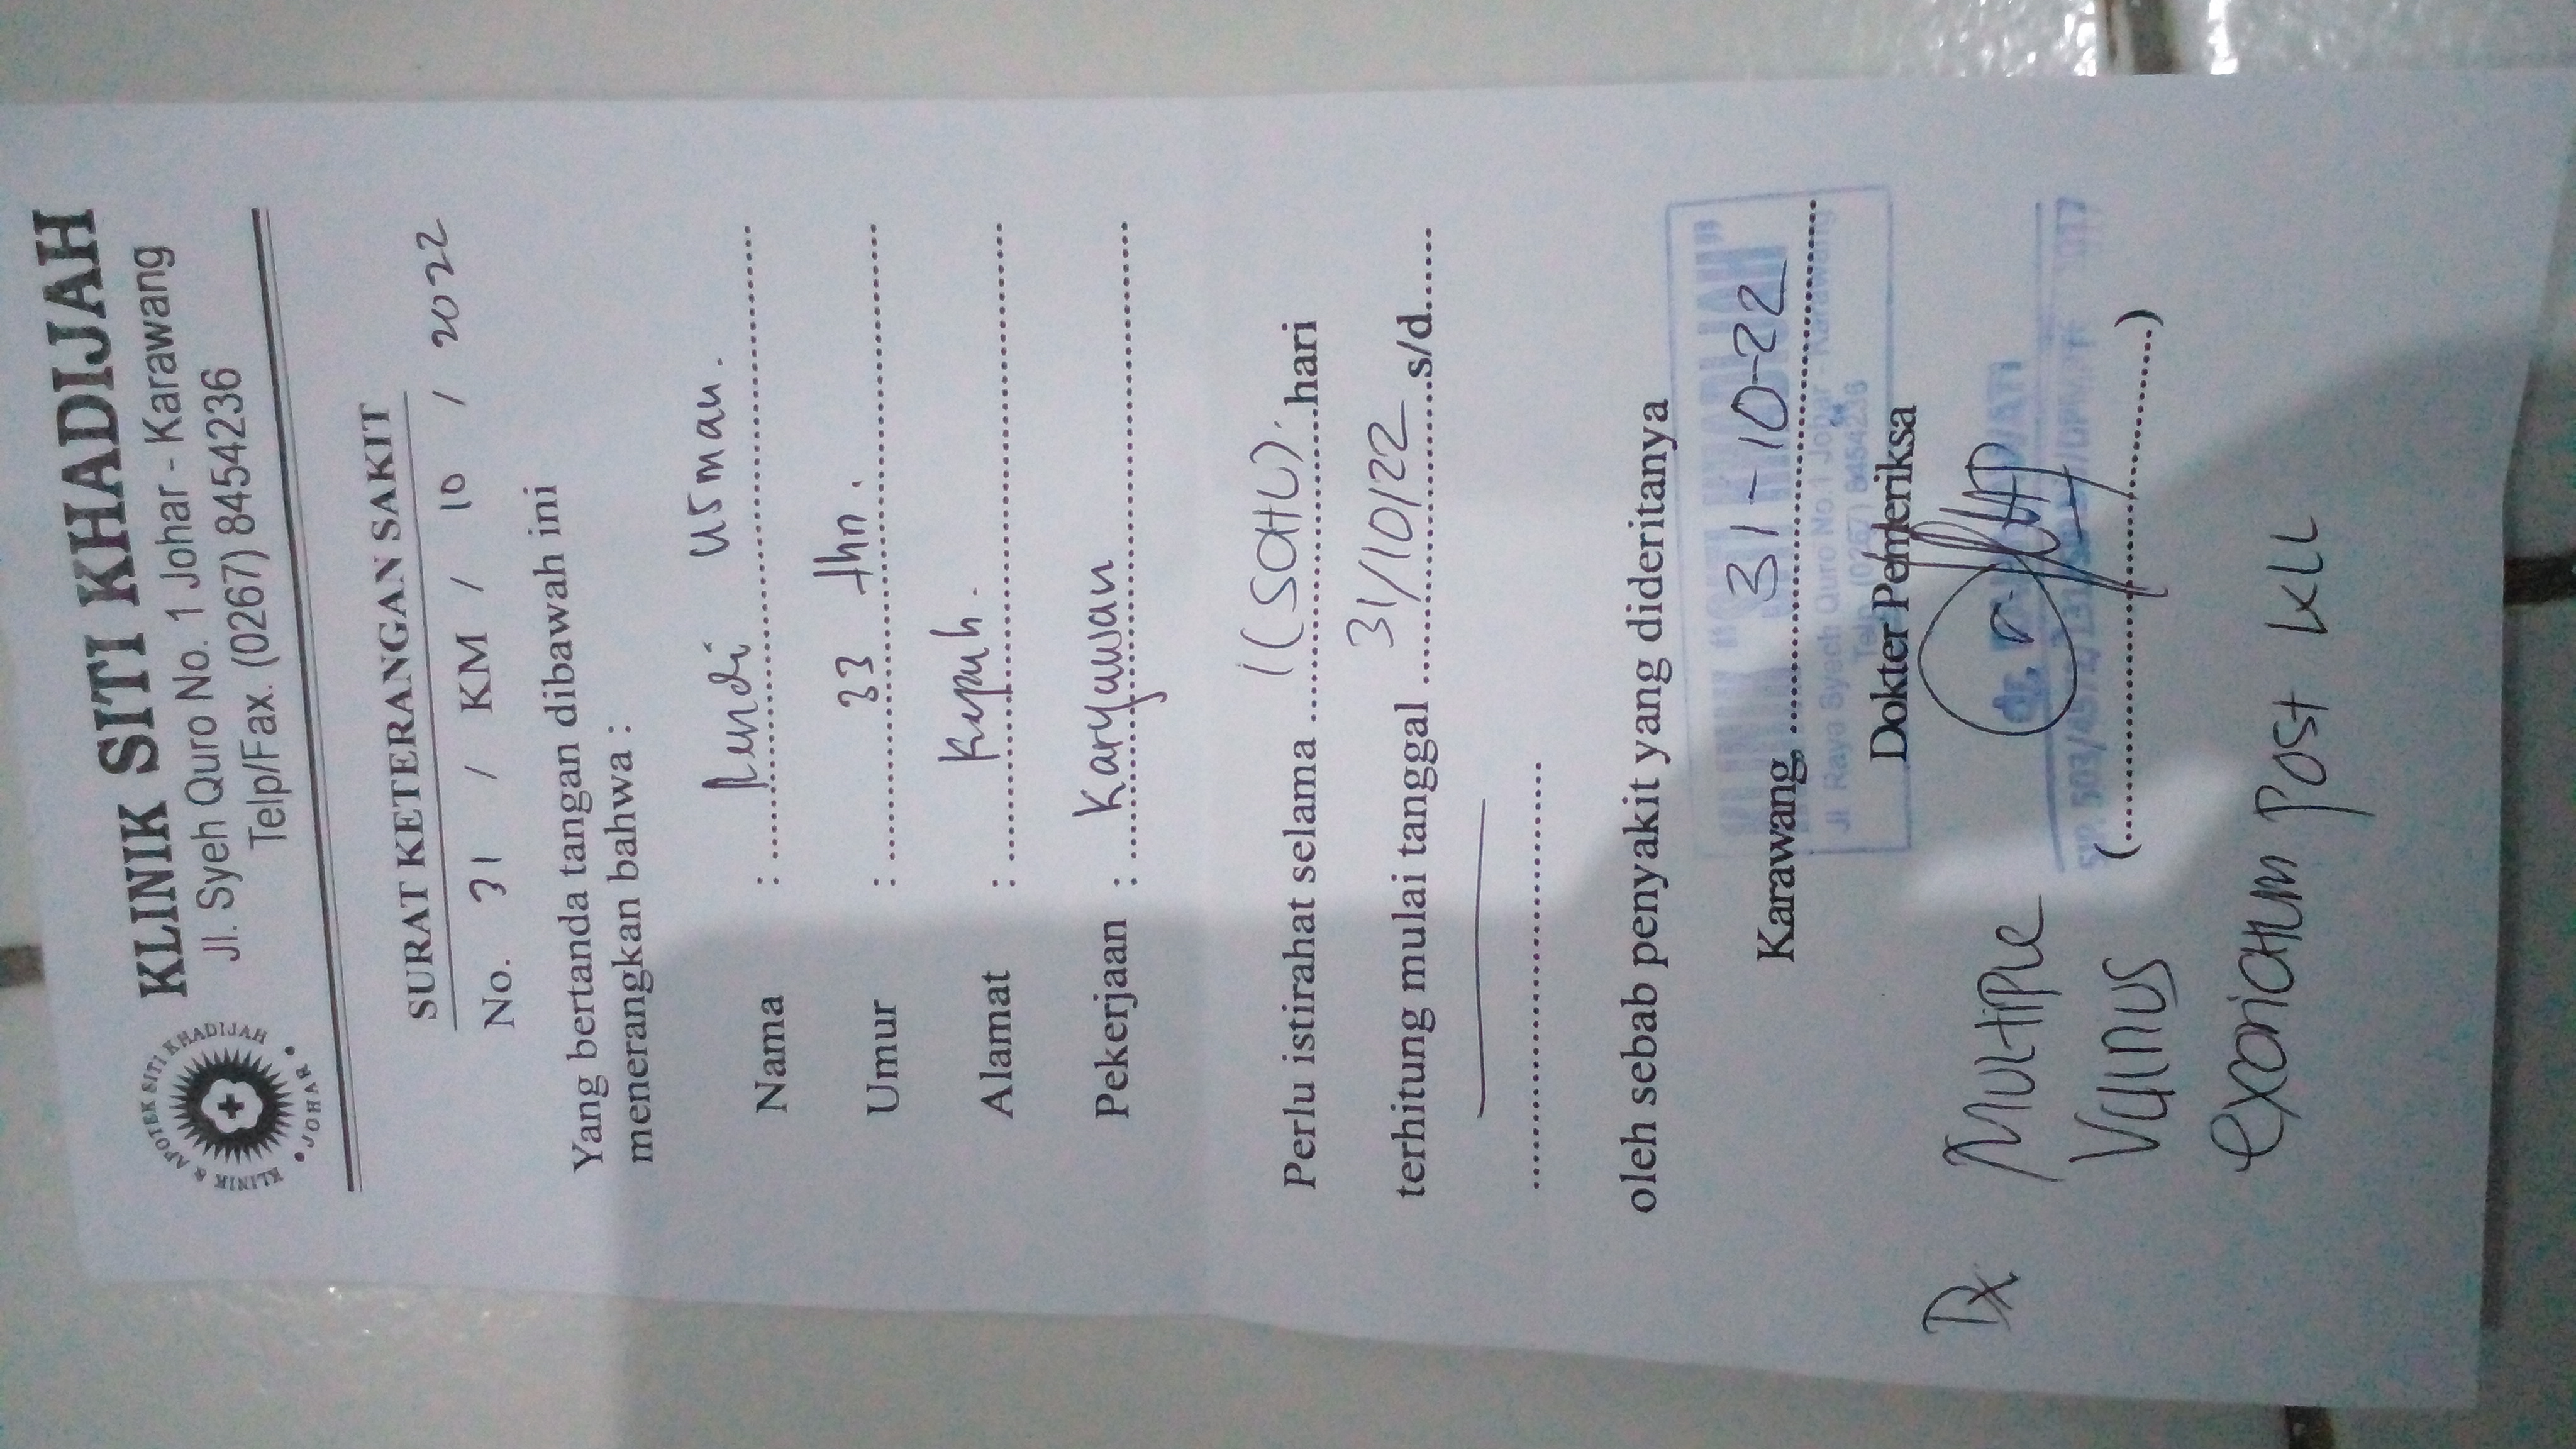 KLINIK & APOTEK SITI KHADIJAH
• JOHAR •
KLINIK SITI KHADIJAH
Jl. Syeh Quro No. 1 Johar - Karawang
Telp/Fax. (0267) 8454236
SURAT KETERANGAN SAKIT
No. 31 / KM / 10 / 2022
Yang bertanda tangan dibawah ini
menerangkan bahwa :
Nama : Rendi Usman.
Umur : 33 thn.
Alamat : Kepuh.
Pekerjaan : Karyawan
Perlu istirahat selama 1 (SATU) hari
terhitung mulai tanggal 31/10/22 s/d
oleh sebab penyakit yang dideritanya
KLINIK "SITI KHADIJAH"
Karawang, 31-10-22
Jl. Raya Syech Quro No.1 Johar - Karawang
Telp. (0267) 8454236
Dokter Pemeriksa
Dx Multiple
dr.
Vulnus
exoriatum post KLL